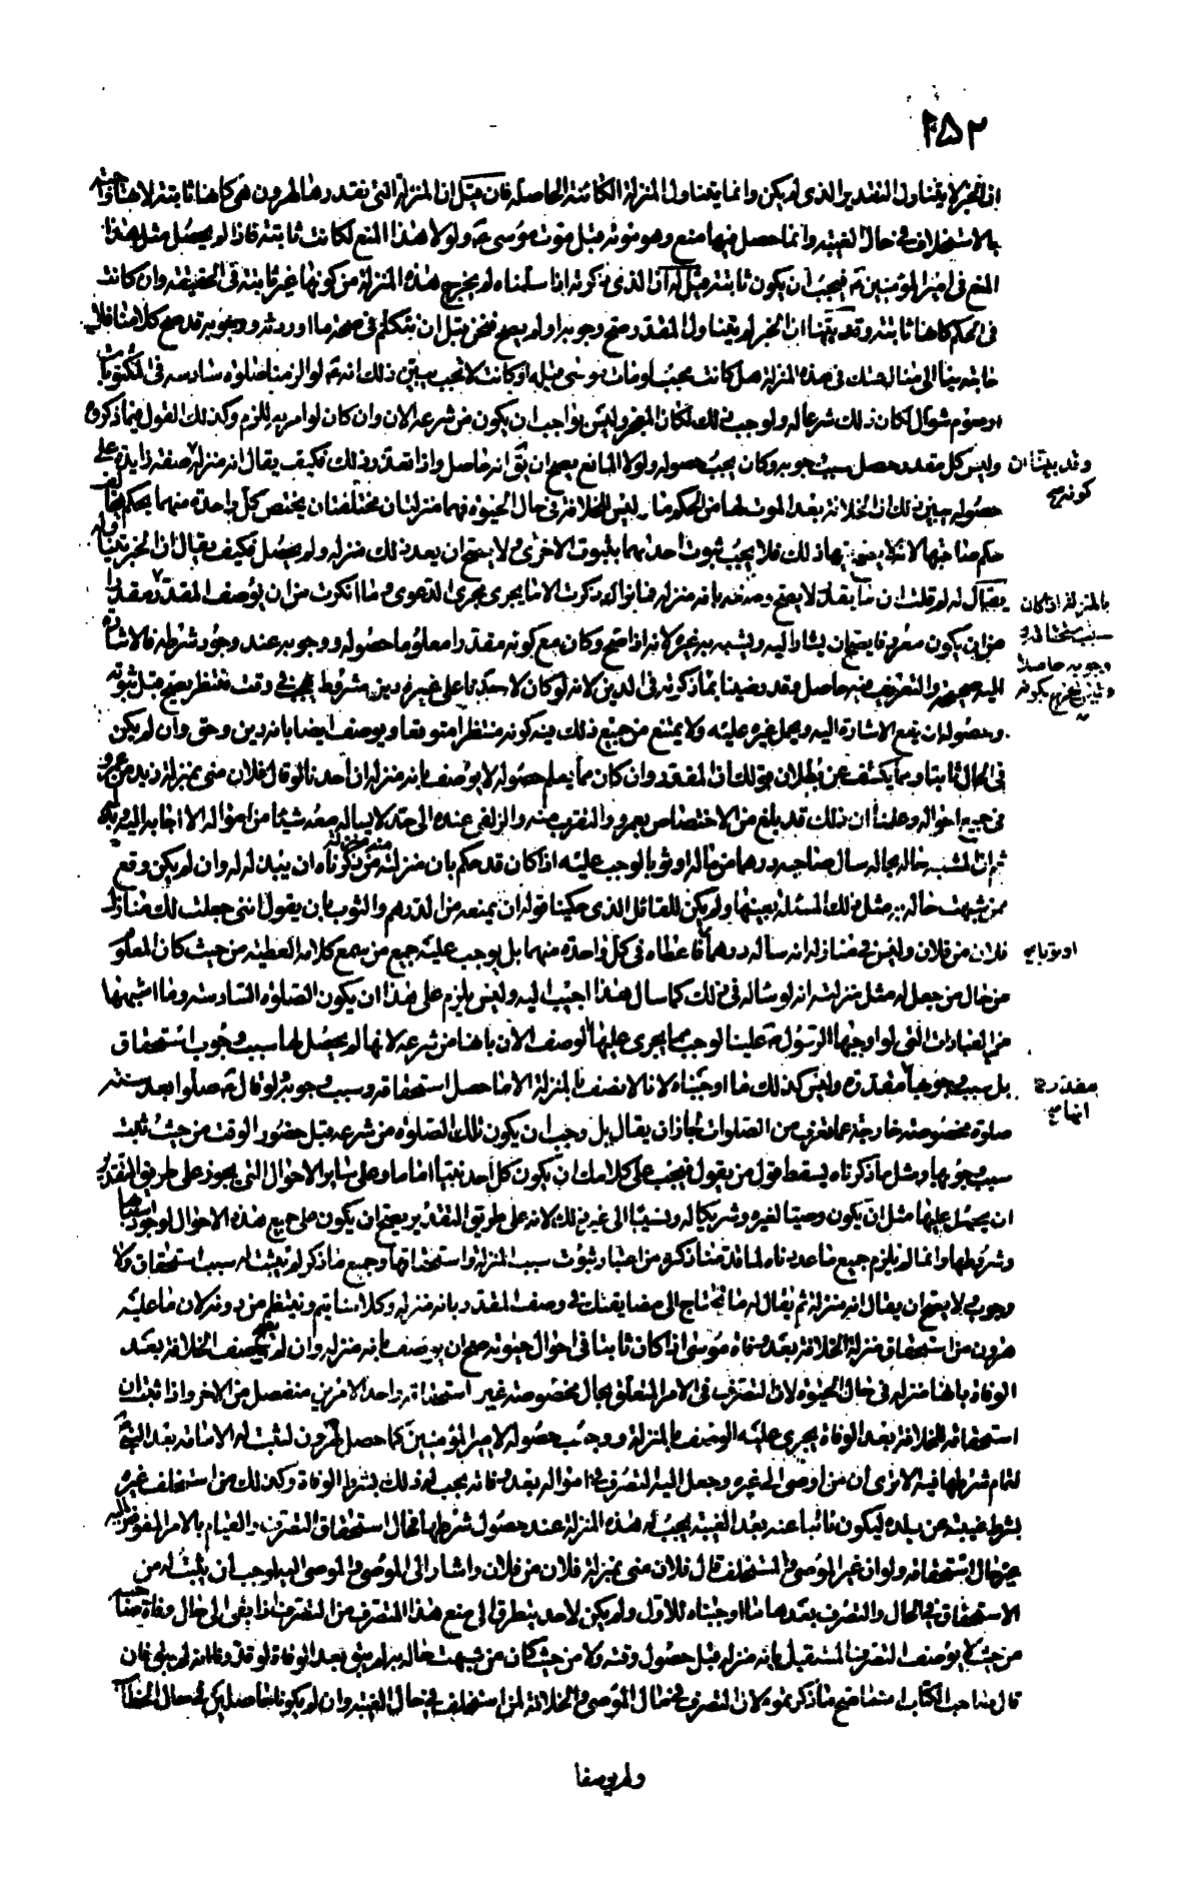 ٢٥٢
اذ الخبر لا يتناول التقدير الذى لم يكن وانما يتناول المنزلة الكائنة الحاصلة فان قيل ان المنزلة التى نقدرها لهرون هى كانها ثابتة لانها
بالاستخلاف فى حال الغيبة وانما حصل فيها منع وهو موته قبل موت موسى ع ولولا هذا المنع لكانت ثابتة فاذا لم يحصل مثل هذا
المنع فى امير المؤمنين ع فيجب ان يكون ثابتة قيل له ان الذى ذكرته اذا سلمناه لم يخرج هذه المنزلة من كونها غير ثابتة فى الحقيقة وان كانت
فى الحكم كانها ثابتة وقد بينا ان الخبر لم يتناول المقدر صح وجوبه او لم يصح فنحن قبل ان نتكلم فى صحة ما اوردته ووجوبه قد صح كلامنا فلا
حاجة بنا الى منازعتك فى هذه المنزلة هل كانت تجب لو مات موسى قبله او كانت لا تجب يبين ذلك انه ع لو الزمنا صلوة سادسة فى المكتوبات
او صوم شوال لكان ذلك شرعا له ولوجب ذلك لمكان المعجز وليس بواجب ان يكون من شرعه الان وان كان لو امر به للزم وكذلك القول فيما ذكروه
وليس كل مقدر حصل سبب وجوبه وكان يجب حصوله لولا المانع يصح ان يق انه حاصل واذا تعذر ذلك فكيف يقال انه منزلة
وقد بينا ان
كونه
حصوله يبين ذلك ان الخلافة بعد الموت لها من الحكم ما ليس للخلافة فى حال الحيوة فهما منزلتان مختلفتان يختص كل واحدة منهما بحكم
حكم صاحبها لان ذلك فلا يجب ثبوت احدهما بثبوت الاخرى ولا يصح ان يعد ذلك منزلة ولم يحصل فكيف يقال ان الخبر يتناوله
يقال له لم قلت ان ما يقدر لا يصح وصفه بانه منزلة فما نراك ذكرت الا ما يجرى مجرى الدعوى وما انكرت من ان يوصف المقدر
بالمنزلة اذا كان
سبب استحقاقه
وجوبه حاصلا
وليس يخرج بكونه
من ان يكون معروفا يصح ان يشار اليه ويشبه به غيره لانه اذا صح وكان مع كونه مقدرا معلوما حصوله ووجوبه عند وجود شرطه فالاشارة
اليه صحيحة والتعريف فيه حاصل وقد رضينا بما ذكرته فى الدين لانه لو كان لاحدنا على غيره دين مشروط يجب فى وقت منتظر يصح قبل ثبوته
وحصوله ان يقع الاشارة اليه ويحمل غيره عليه ولا يمتنع من جميع ذلك فيه كونه منتظرا متوقعا ويوصف ايضا بانه دين وحق وان لم يكن
فى الحال ثابتا ومما يكشف عن بطلان قولك ان المقدر وان كان مما يعلم حصوله لا يوصف بانه منزلة ان احدنا لو قال فلان منى بمنزلة زيد من عمرو
فى جميع احواله وعلمنا ان ذلك قد بلغ من الاختصاص بعمرو والتقرب منه والزلفى عنده الى حد لا يساله معه شيئا من امواله الا اجابه اليه
ثم ان المشبه حاله بحاله سال صاحبه درهما من ماله او ثوبا لوجب عليه اذا كان قد حكم بان منزلته منه من ذكرناه ان يبذله له وان لم يكن وقع
ممن شبهت حاله به مثل ذلك المسئلة بعينها ولم يكن للقائل الذى حكينا قوله ان يمنعه من الدرهم والثوب بان يقول اننى جعلت لك منازل
فلان من فلان وليس فى منازله انه ساله درهما فاعطاه فى كل واحدة منهما بل يوجب عليه جميع من يسمع كلامه العطية من حيث كان المعلوم
او ثوبا
من حال من جعل له مثل منزلته انه لو ساله فى ذلك كما سال هذا اجيب اليه وليس يلزم على هذا ان يكون الصلوة السادسة وما اشبهها
من العبادات التى لو اوجبها الرسول ع علينا لوجب مما يجرى عليها الوصف الان بانها من شرعه لانها لم يحصل لها سبب وجوب استحقاق
بل سبب وجوبها مقدرة وليس كذلك ما اوجبناه لانا لا نصف بالمنزلة الا ما حصل استحقاقه وسبب وجوبه ولو قال ع صلوا بعد سنة
مقدر
انها
صلوة مخصوصة خارجة عما نعرف من الصلوات لجاز ان يقال بل وجب ان يكون تلك الصلوة من شرعه قبل حضور الوقت من حيث ثبت
سبب وجوبها ومثل ما ذكرناه يسقط قول من يقول فيجب على كلامك ان يكون كل احد نبيا اماما وعلى سائر الاحوال التى يجوز على طريق التقدير
ان يحصل عليها مثل ان يكون وصيا لغيره وشريكا له ونسيبا الى غير ذلك لانه على طريق التقدير يصح ان يكون على جميع هذه الاحوال لوجود اسبابها
وشروطها وانما لم يلزم جميع ما عددناه لما قدمنا ذكره من اعتبار ثبوت سبب المنزلة واستحقاقها وجميع ما ذكر لم يثبت له سبب استحقاق ولا
وجوب ولا يصح ان يقال انه منزلة ثم يقال له ما نحتاج الى مضايقتك فى وصف المقدر بانه منزلة وكلامنا يتم وينتظم من دونه لان ما عليه
هرون من استحقاق منزلة الخلافة بعد وفاة موسى اذا كان ثابتا فى احوال حيوته صح ان يوصف بانه منزلة وان لم يصح وصف الخلافة بعد
الوفاة بانها منزلة فى حال الحيوة لان التصرف فى الامر المتعلق بحال مخصوصة غير استحقاقه واحد الامرين منفصل من الاخر واذا ثبت ان
استحقاقه للخلافة بعد الوفاة يجرى عليه الوصف بالمنزلة ووجب حصوله لامير المؤمنين كما حصل لهرون لثبت له الامامة بعد النبى
لتمام شرطها فيه الا ترى ان من اوصى الى غيره وجعل اليه التصرف فى امواله بعد وفاته يجب له ذلك بشرط الوفاة وكذلك من استخلف غيره
بشرط غيبته عن بلده ليكون نائبا عنه بعد الغيبة يجب له هذه المنزلة عند حصول شرطها فحال استحقاق التصرف والقيام بالامر المفوض اليه
غير حال استحقاقه ولو ان غير الموصى والمستخلف قال فلان منى بمنزلة فلان من فلان واشار الى الموصى والموصى اليه لوجب ان يثبت له من
الاستحقاق فى الحال والتصرف بعدها ما اوجبناه للاول ولم يكن لاحد يتطرق الى منع هذا المتصرف من التصرف اذا بقى الى حال وفاة صاحبه
من حيث لا يوصف التصرف المستقبل بانه منزلة قبل حصول وقته ولا من حيث كان من شبهت حاله به لم يبق بعد الوفاة لو قدرنا انه لم يبق فان
قال صاحب الكتاب انما صح ما ذكرتموه لان التصرف فى مال الموصى والخلافة لمن استخلف فى حال الغيبة وان لم يكونا حاصلين فى حال الخطاب
ولم يوصفا